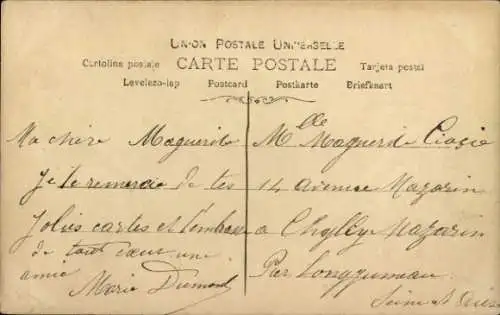 UNION POSTALE UNIVERSELLE
Cartolina postale CARTE POSTALE Tarjeta postal
Levelezo-lap Postcard Postkarte Briefkaart
Ma chère Maguerite
Je te remercie de tes
Jolies cartes et t'embrasse
de tout cœur une
amie
Marie Dumont
Mlle Maguerite
14 avenue Mazarin
a Chylly Mazarin
Par Longjumeau
Seine et Oise